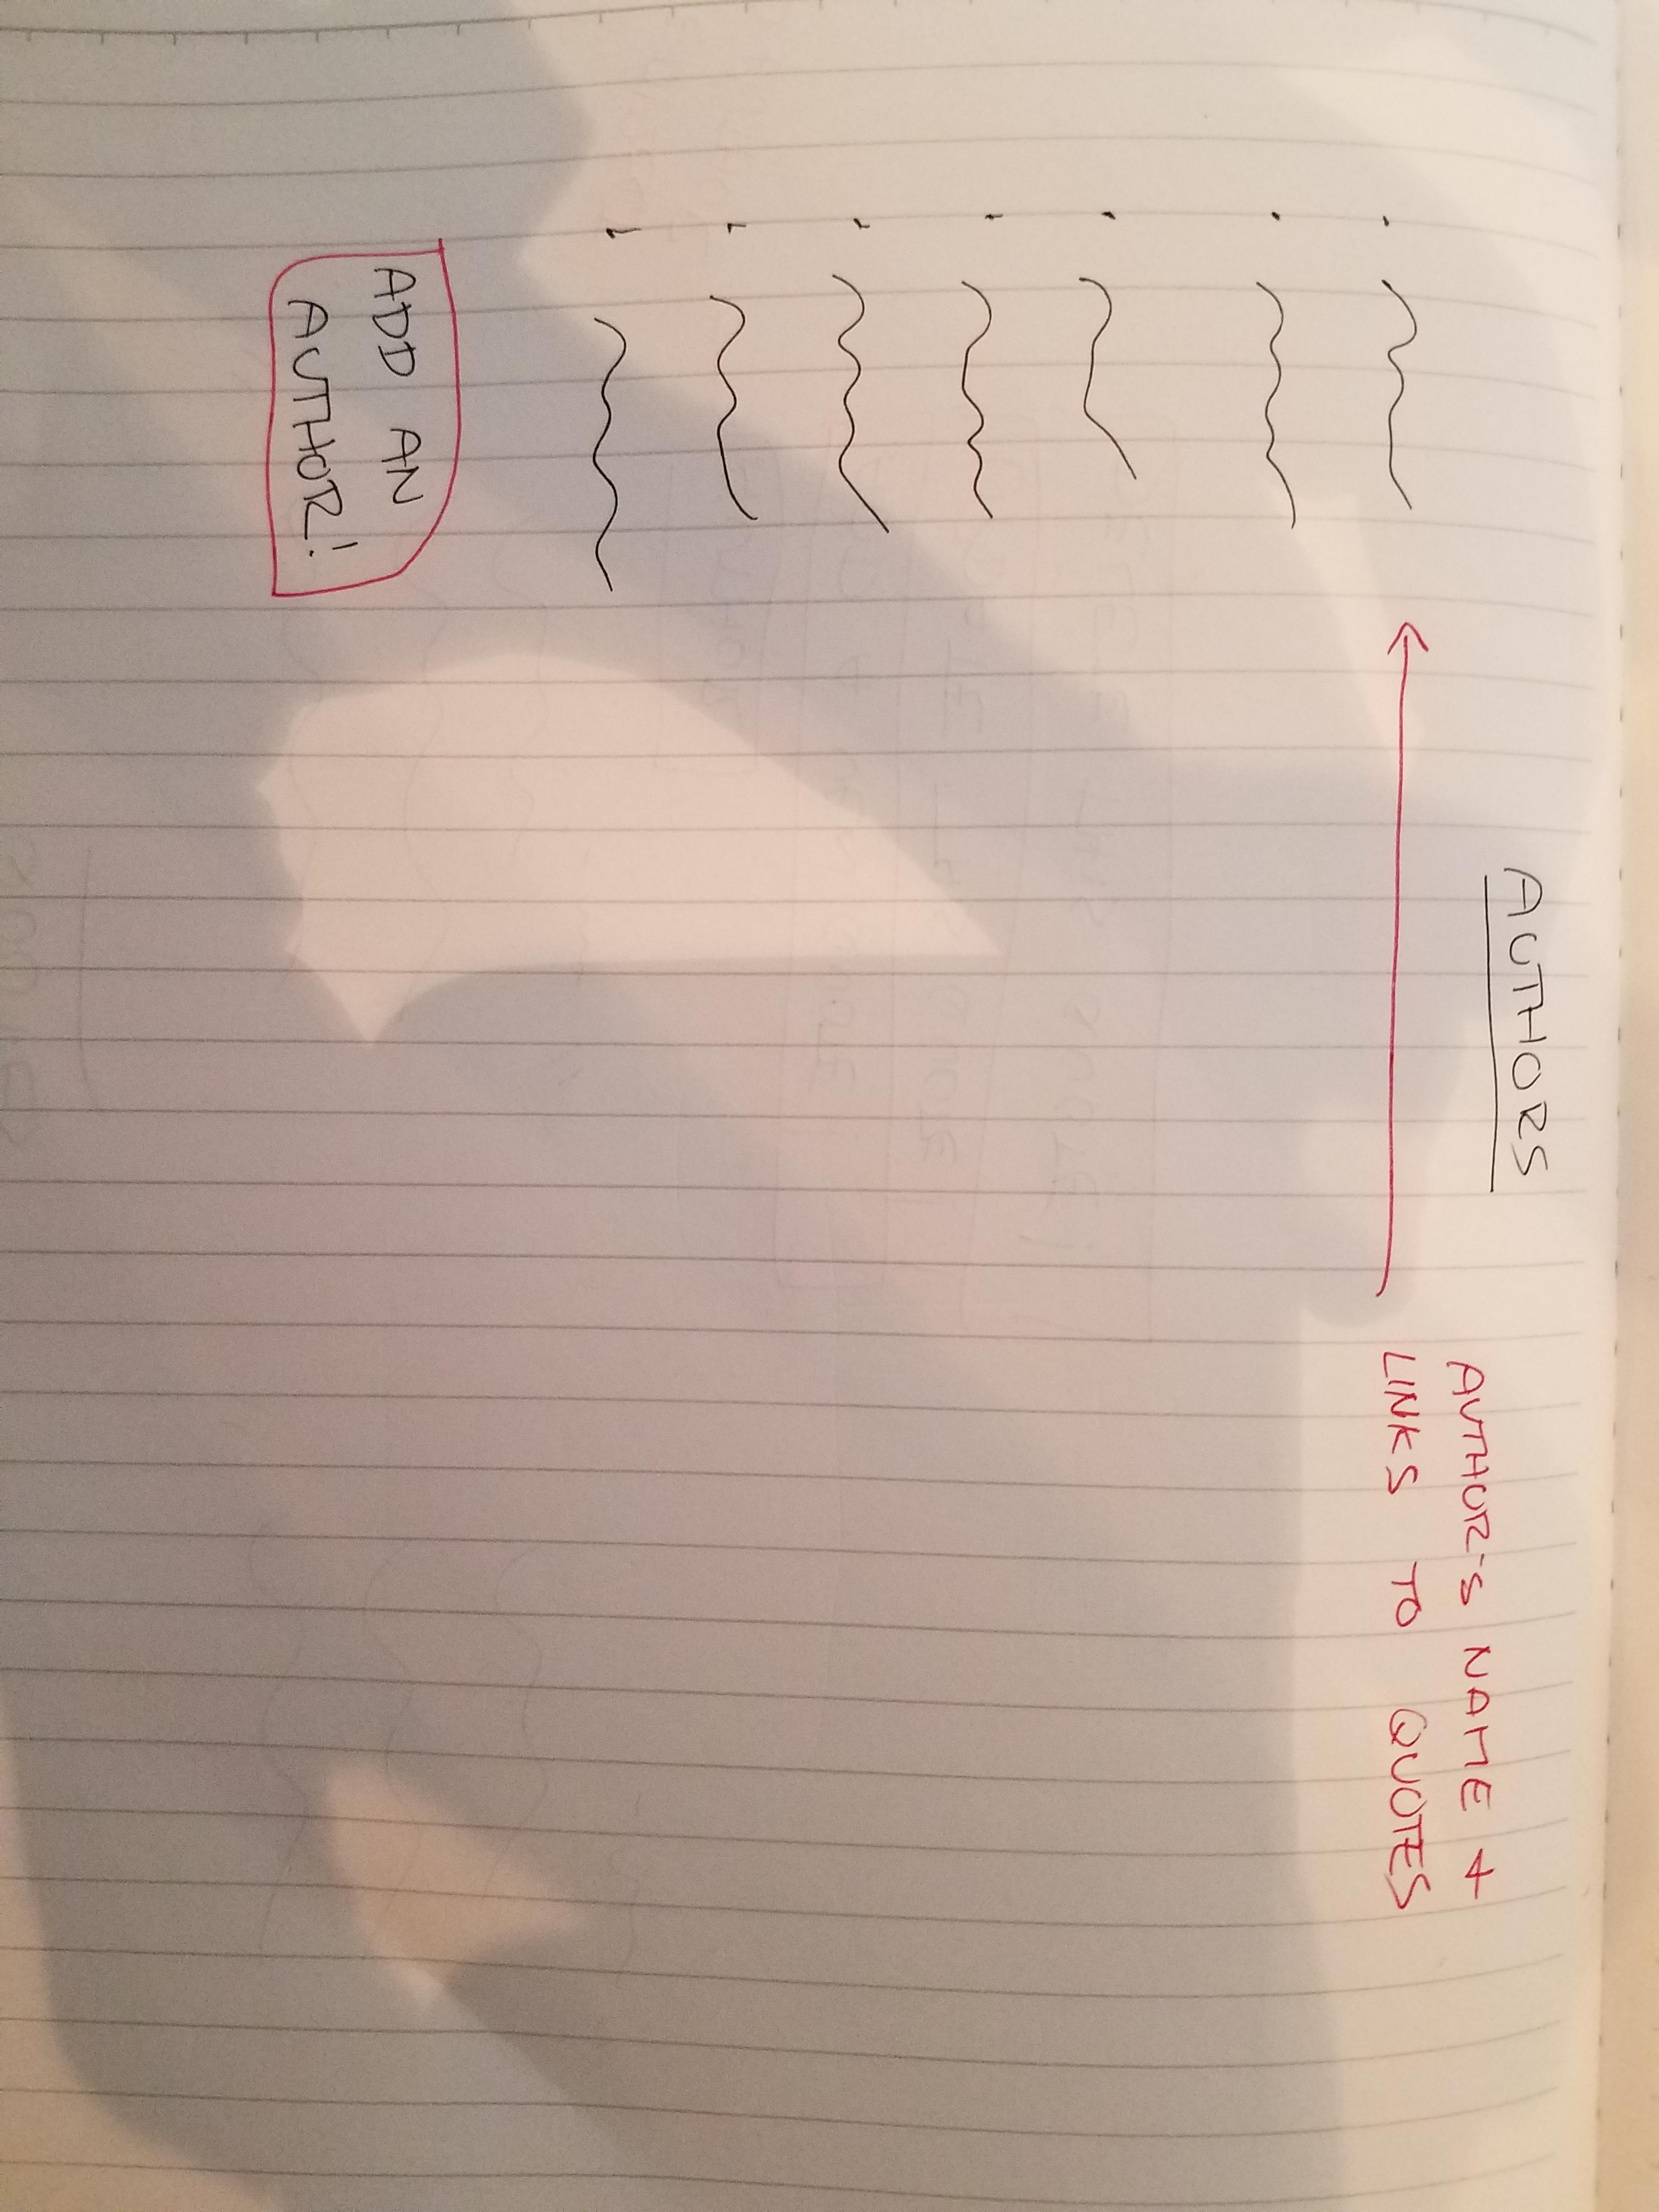 AUTHORS
AUTHOR'S NAME +
LINKS TO QUOTES
ADD AN
AUTHOR!